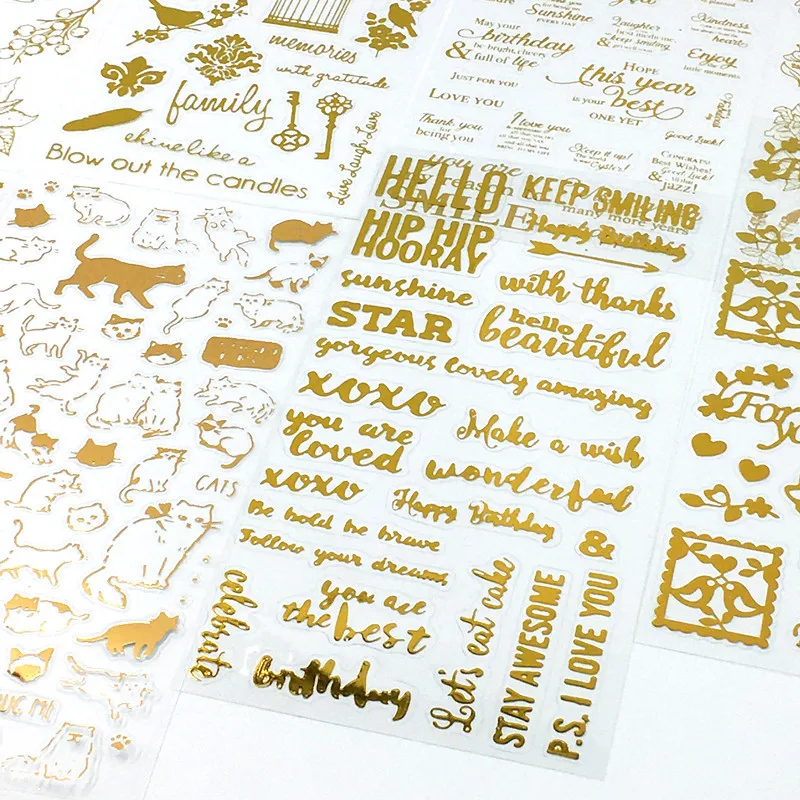 memories
with gratitude
family
Live Laugh Love
shine like a
Blow out the candles
Sunshine
EVERY DAY
May your
birthday
be bright, cheery
& full of life
Laughter
keep smiling
Kindness
heart
Enjoy
little moments
JUST FOR YOU
LOVE YOU
HOPE
this year
is your best
ONE YET
Thank you
for
being you
I love you
Keep it up!
Good Luck!
CONGRATS
Best Wishes!
Good Luck!
& all that
Jazz!
you are
reason
SMILE
many more years
HELLO
KEEP SMILING
HIP HIP
HOORAY
Happy Birthday
sunshine
with thanks
STAR
hello
beautiful
gorgeous lovely amazing
xoxo
Make a wish
you are
loved
wonderful
xoxo
Happy Birthday
&
Be bold be brave
Follow your dreams
you are
the best
celebrate
birthday
Let's eat cake
STAY AWESOME
P.S. I LOVE YOU
CATS
HUG ME
For